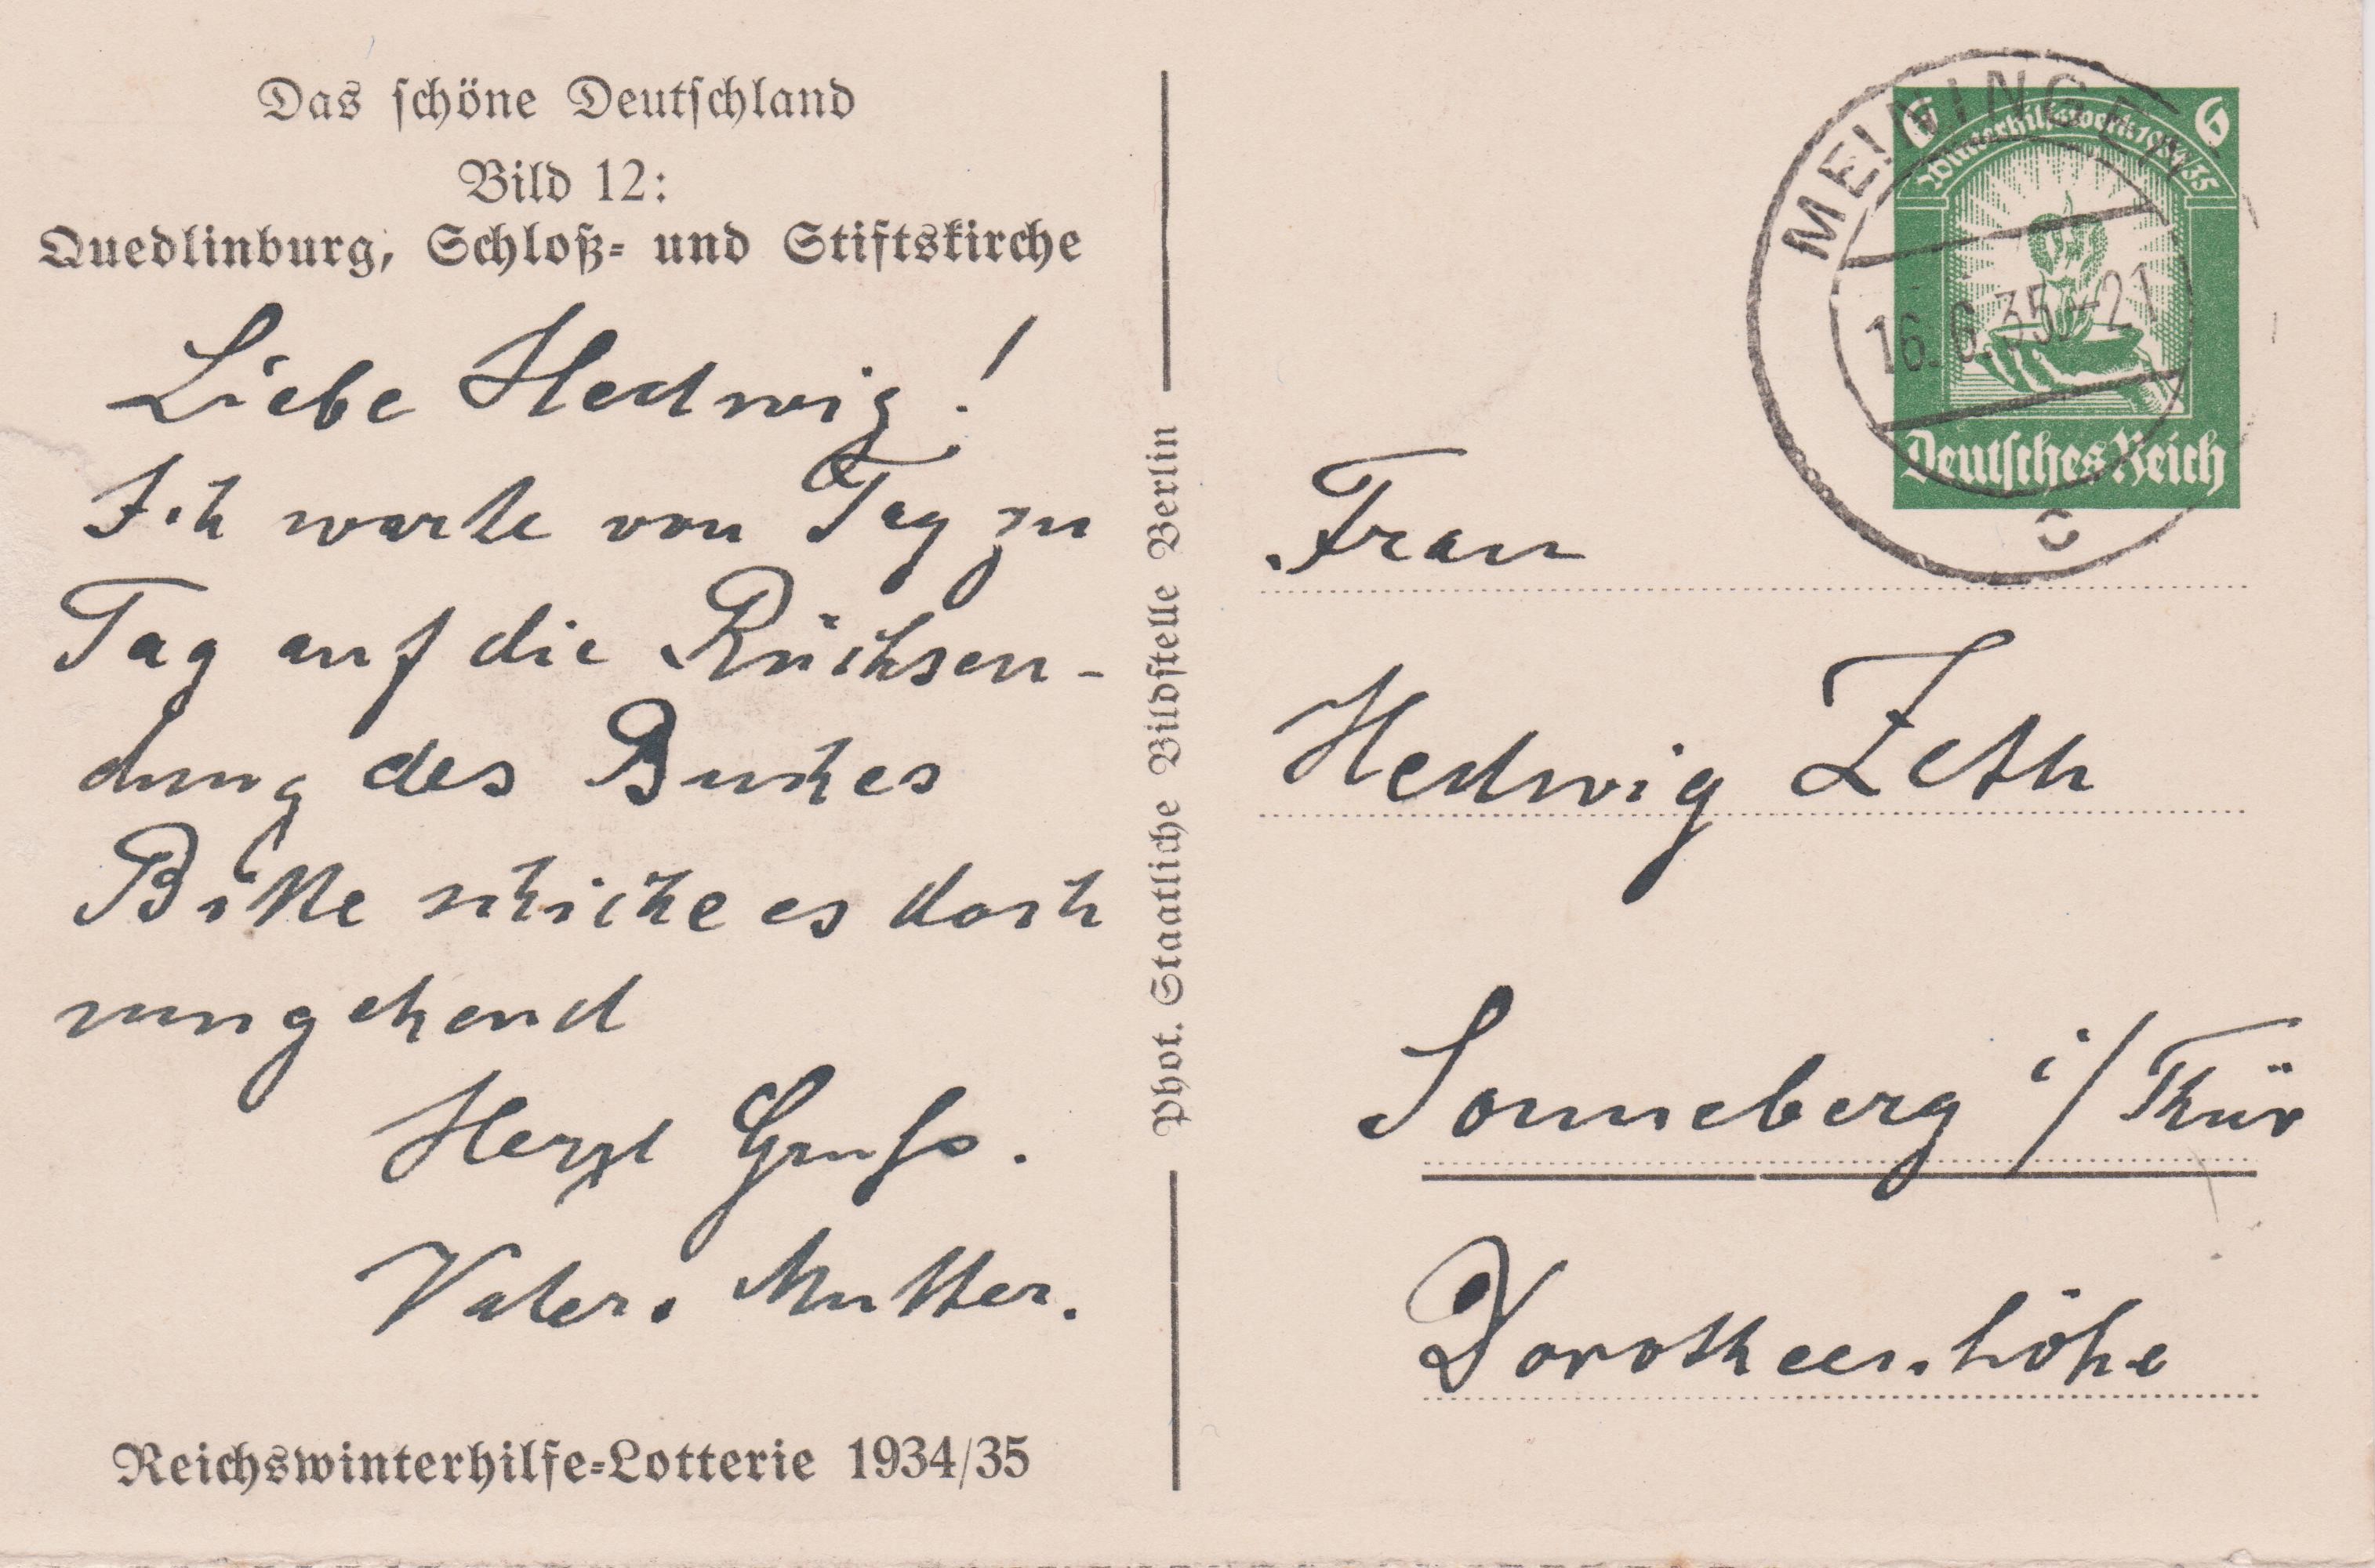 Das schöne Deutschland
Bild 12:
Quedlinburg, Schloß- und Stiftskirche
Liebe Hedwig!
Ich warte von Tag zu
Tag auf die Rücksen-
dung des Buches
Bitte schicke es doch
umgehend
Herzl Gruß.
Vater. Mutter.
Reichswinterhilfe-Lotterie 1934/35
Phot. Staatliche Bildstelle Berlin
MEININGEN
16.6.35.-21
c
6 6
Winterhilfswerk 1934/35
Deutsches Reich
Frau
Hedwig Zeth
Sonneberg i/Thür
Dorotheenhöhe